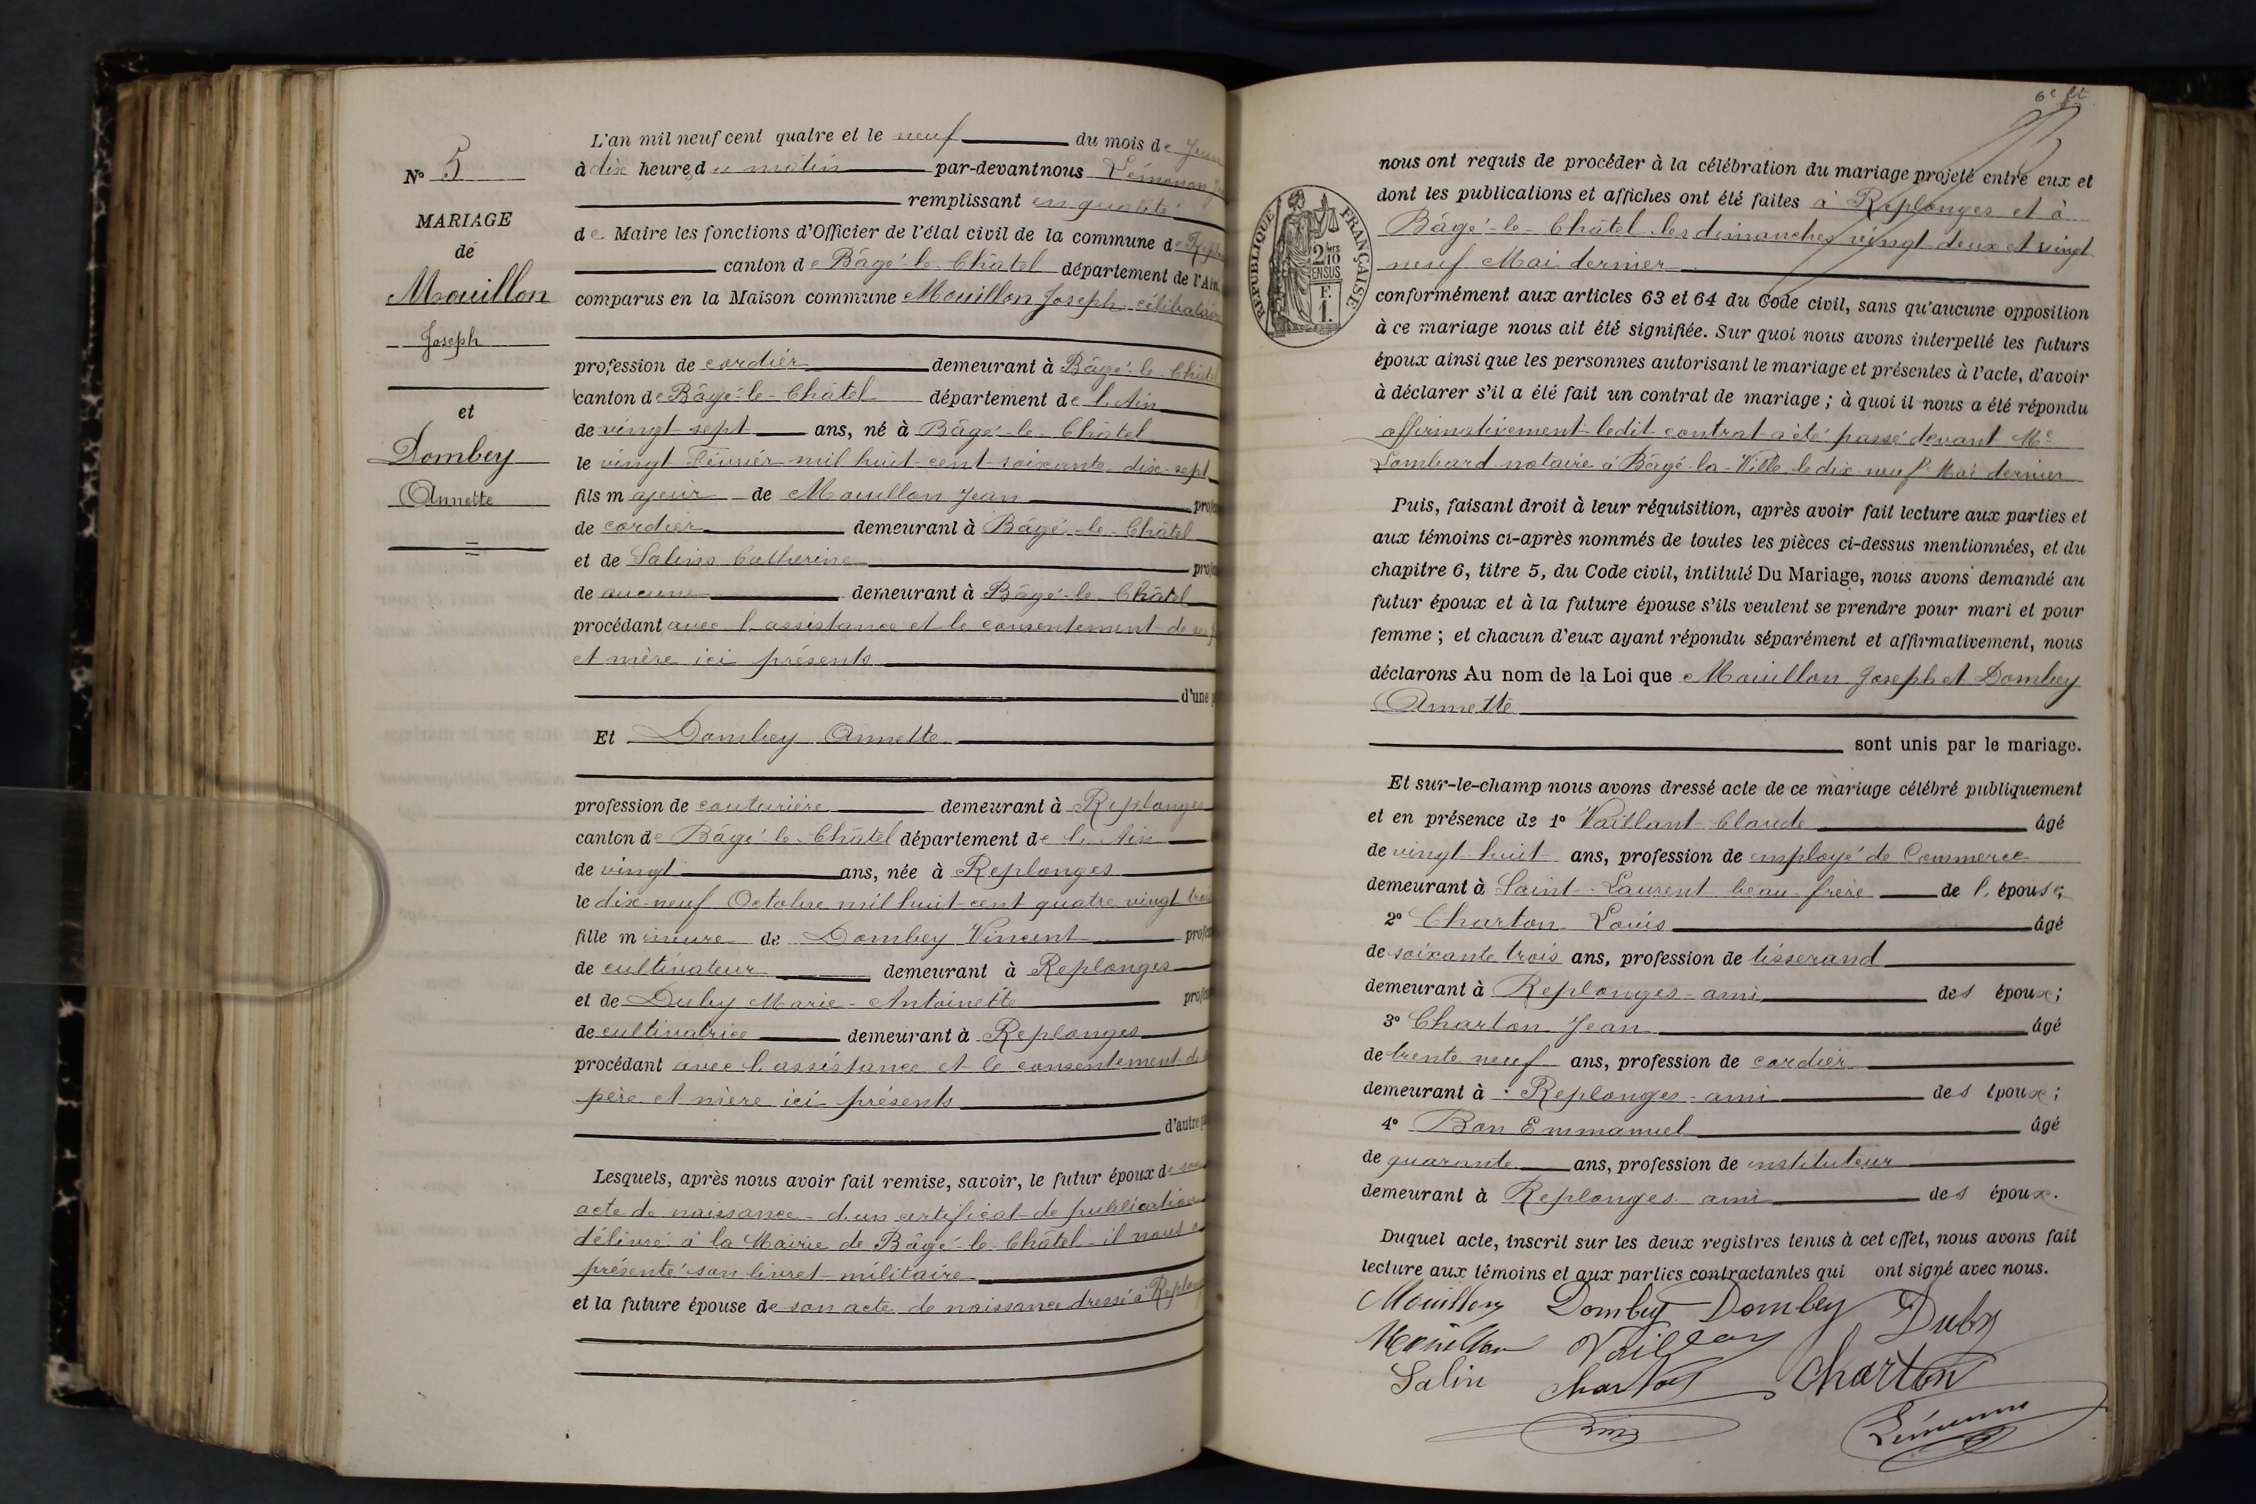 N° 5
MARIAGE
de
Mouillon
Joseph
et
Dombey
Annette
L'an mil neuf cent quatre et le neuf du mois de
à dix heures du matin par-devant nous
remplissant en qualité
de Maire les fonctions d'Officier de l'état civil de la commune de
canton de Bâgé-le-Châtel département de l'Ain,
comparus en la Maison commune Mouillon Joseph célibataire
profession de cordier demeurant à Bâgé-le-Châtel
canton de Bâgé-le-Châtel département de l'Ain
de vingt-sept ans, né à Bâgé-le-Châtel
le vingt Février mil huit-cent-soixante-dix-sept
fils majeur de Mouillon Jean
de cordier demeurant à Bâgé-le-Châtel
et de Salins Catherine
de aucune demeurant à Bâgé-le-Châtel
procédant avec l'assistance et le consentement de ses
et mère ici présents
d'une
Et Dombey Annette
profession de couturière demeurant à Replonges
canton de Bâgé-le-Châtel département de l'Ain
de vingt ans, née à Replonges
le dix-neuf Octobre mil huit-cent quatre vingt trois
fille mineure de Dombey Vincent
de cultivateur demeurant à Replonges
et de Duby Marie-Antoinette
de cultivatrice demeurant à Replonges
procédant avec l'assistance et le consentement de
père et mère ici présents
d'autre
Lesquels, après nous avoir fait remise, savoir, le futur époux de son
acte de naissance - d'un certificat de publication
délivré à la Mairie de Bâgé-le-Châtel - il nous a
présenté son livret militaire
et la future épouse de son acte de naissance dressé à
nous ont requis de procéder à la célébration du mariage projeté entre eux et
dont les publications et affiches ont été faites à Replonges et à
Bâgé-le-Châtel les dimanches vingt-deux et vingt
neuf Mai dernier
RÉPUBLIQUE FRANÇAISE
conformément aux articles 63 et 64 du Code civil, sans qu'aucune opposition
à ce mariage nous ait été signifiée. Sur quoi nous avons interpellé les futurs
époux ainsi que les personnes autorisant le mariage et présentes à l'acte, d'avoir
à déclarer s'il a été fait un contrat de mariage ; à quoi il nous a été répondu
affirmativement ledit contrat a été passé devant Me
Lombard notaire à Bâgé-la-Ville le dix neuf Mai dernier
Puis, faisant droit à leur réquisition, après avoir fait lecture aux parties et
aux témoins ci-après nommés de toutes les pièces ci-dessus mentionnées, et du
chapitre 6, titre 5, du Code civil, intitulé Du Mariage, nous avons demandé au
futur époux et à la future épouse s'ils veulent se prendre pour mari et pour
femme ; et chacun d'eux ayant répondu séparément et affirmativement, nous
déclarons Au nom de la Loi que Mouillon Joseph et Dombey
Annette
sont unis par le mariage.
Et sur-le-champ nous avons dressé acte de ce mariage célébré publiquement
et en présence de 1° Vaillant Claude âgé
de vingt-huit ans, profession de employé de Commerce
demeurant à Saint-Laurent beau-frère de l'épouse;
2° Charton Louis âgé
de soixante trois ans, profession de tisserand
demeurant à Replonges - ami des époux;
3° Charton Jean âgé
de trente neuf ans, profession de cordier
demeurant à Replonges - ami des époux;
4° Bon Emmanuel âgé
de quarante ans, profession de instituteur
demeurant à Replonges ami des époux.
Duquel acte, inscrit sur les deux registres tenus à cet effet, nous avons fait
lecture aux témoins et aux parties contractantes qui ont signé avec nous.
Mouillon Dombey Dombey Duby
Mouillon Vaillant
Salin Charton Charton